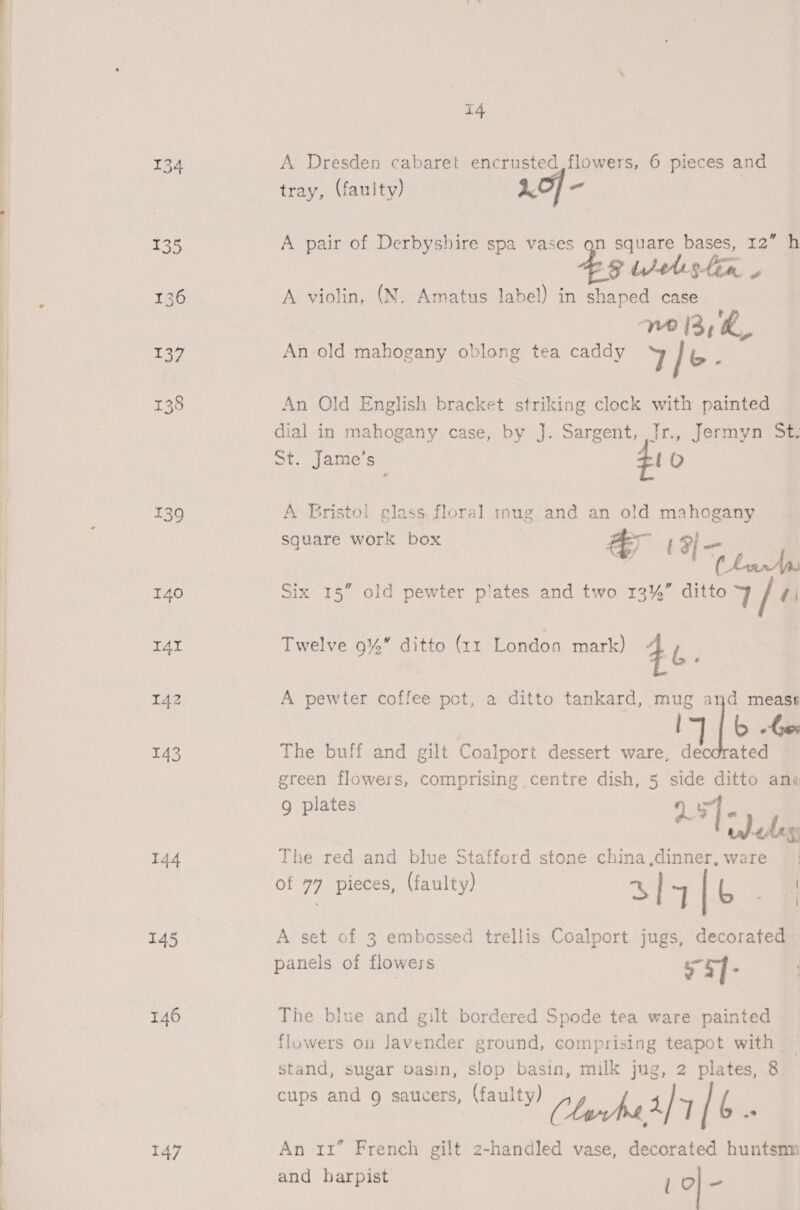 14
134 A Dresden cabaret encrusted flowers, 6 pieces and
tray, (faulty) 20/-
135 A pair of Derbyshire spa vases on square bases, 12" h
£8 Webster
136 A violin, (N. Amatus label) in shaped case
no B,
137 An old mahogany oblong tea caddy 7/6.
138 An Old English bracket striking clock with painted
dial in mahogany case, by J. Sargent, Jr., Jermyn St.
St. Jame's £10
139 A Bristol glass floral mug and an old mahogany
square work box 13/-
140 Six 15" old pewter plates and two 13½" ditto 7/
141 Twelve 9½" ditto (11 London mark) £6.
142 A pewter coffee pot, a ditto tankard, mug and meas
17/6
143 The buff and gilt Coalport dessert ware, decorated
green flowers, comprising centre dish, 5 side ditto an
9 plates 25/-
144 The red and blue Stafford stone china dinner, ware
of 77 pieces, (faulty) 3/7/6
145 A set of 3 embossed trellis Coalport jugs, decorated
panels of flowers 55/-
146 The blue and gilt bordered Spode tea ware painted
flowers on lavender ground, comprising teapot with
stand, sugar basin, slop basin, milk jug, 2 plates, 8
cups and 9 saucers, (faulty) Clarke 2/7/6
147 An 11" French gilt 2-handled vase, decorated huntsm
and harpist 10/-